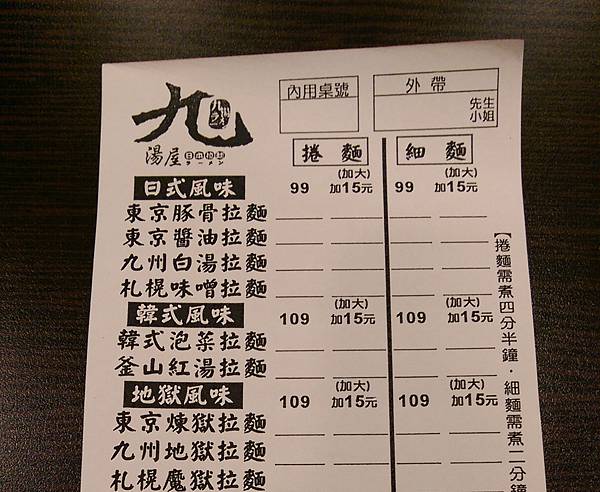 九
湯屋 日本拉麵
ラーメン
內用桌號
外帶
先生
小姐
捲麵 細麵
日式風味 99 (加大) 加15元 99 (加大) 加15元
東京豚骨拉麵
東京醬油拉麵
九州白湯拉麵
札幌味噌拉麵
韓式風味 109 (加大) 加15元 109 (加大) 加15元
韓式泡菜拉麵
釜山紅湯拉麵
地獄風味 109 (加大) 加15元 109 (加大) 加15元
東京煉獄拉麵
九州地獄拉麵
札幌魔獄拉麵
【捲麵需煮四分半鐘．細麵需煮二分鐘